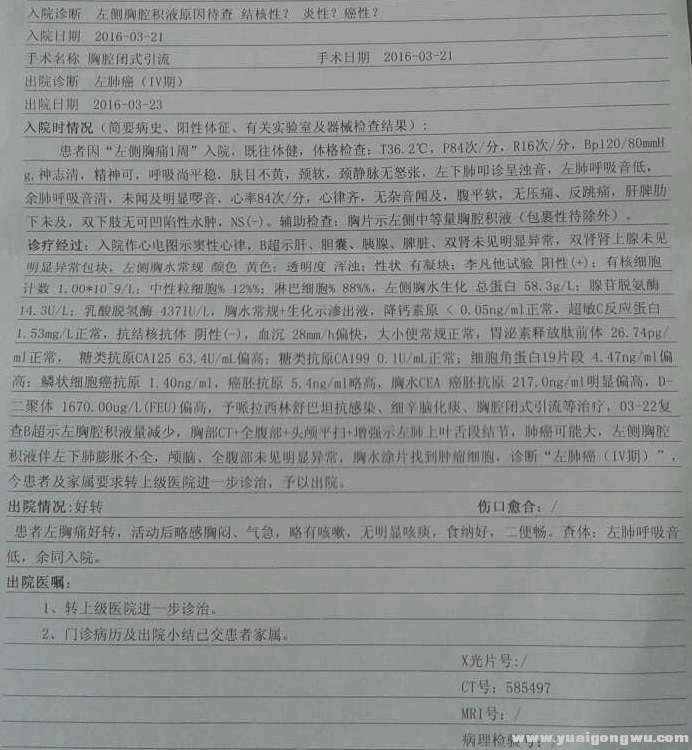 入院诊断 左侧胸腔积液原因待查 结核性? 炎性? 癌性?
入院日期 2016-03-21
手术名称 胸腔闭式引流 手术日期 2016-03-21
出院诊断 左肺癌（IV期）
出院日期 2016-03-23
入院时情况（简要病史、阳性体征、有关实验室及器械检查结果）:
患者因“左侧胸痛1周”入院，既往体健，体格检查: T36.2℃，P84次/分，R16次/分，Bp120/80mmH
g,神志清，精神可，呼吸尚平稳，肤目不黄，颈软，颈静脉无怒张，左下肺叩诊呈浊音，左肺呼吸音低，
余肺呼吸音清，未闻及明显啰音，心率84次/分，心律齐，无杂音闻及，腹平软，无压痛、反跳痛，肝脾肋
下未及，双下肢无可凹陷性水肿，NS(-)。辅助检查: 胸片示左侧中等量胸腔积液（包裹性待除外）。
诊疗经过: 入院作心电图示窦性心律，B超示肝、胆囊、胰腺、脾脏、双肾未见明显异常，双肾肾上腺未见
明显异常包块，左侧胸水常规 颜色 黄色; 透明度 浑浊; 性状 有凝块; 李凡他试验 阳性(+); 有核细胞
计数 1.00*10^9/L; 中性粒细胞% 12%%; 淋巴细胞% 88%%, 左侧胸水生化 总蛋白 58.3g/L; 腺苷脱氨酶
14.3U/L; 乳酸脱氢酶 4371U/L, 胸水常规+生化示渗出液，降钙素原 < 0.05ng/ml正常，超敏C反应蛋白
1.53mg/L正常，抗结核抗体 阴性(-)，血沉 28mm/h偏快，大小便常规正常，胃泌素释放肽前体 26.74pg/
ml正常， 糖类抗原CA125 63.4U/mL偏高; 糖类抗原CA199 0.1U/mL正常; 细胞角蛋白19片段 4.47ng/ml偏
高; 鳞状细胞癌抗原 1.40ng/ml，癌胚抗原 5.4ng/ml略高，胸水CEA 癌胚抗原 217.0ng/ml明显偏高，D-
二聚体 1670.00ug/L(FEU)偏高，予哌拉西林舒巴坦抗感染、细辛脑化痰、胸腔闭式引流等治疗，03-22复
查B超示左胸腔积液量减少，胸部CT+全腹部+头颅平扫+增强示左肺上叶舌段结节，肺癌可能大，左侧胸腔
积液伴左下肺膨胀不全，颅脑、全腹部未见明显异常，胸水涂片找到肿瘤细胞，诊断“左肺癌（IV期）”，
今患者及家属要求转上级医院进一步诊治，予以出院。
出院情况:好转 伤口愈合: /
患者左胸痛好转，活动后略感胸闷、气急，略有咳嗽，无明显咳痰，食纳好，二便畅。查体: 左肺呼吸音
低，余同入院。
出院医嘱:
1、转上级医院进一步诊治。
2、门诊病历及出院小结已交患者家属。
X光片号:/
CT号: 585497
MRI号: /
病理检验号:
www.yuaigongwu.com